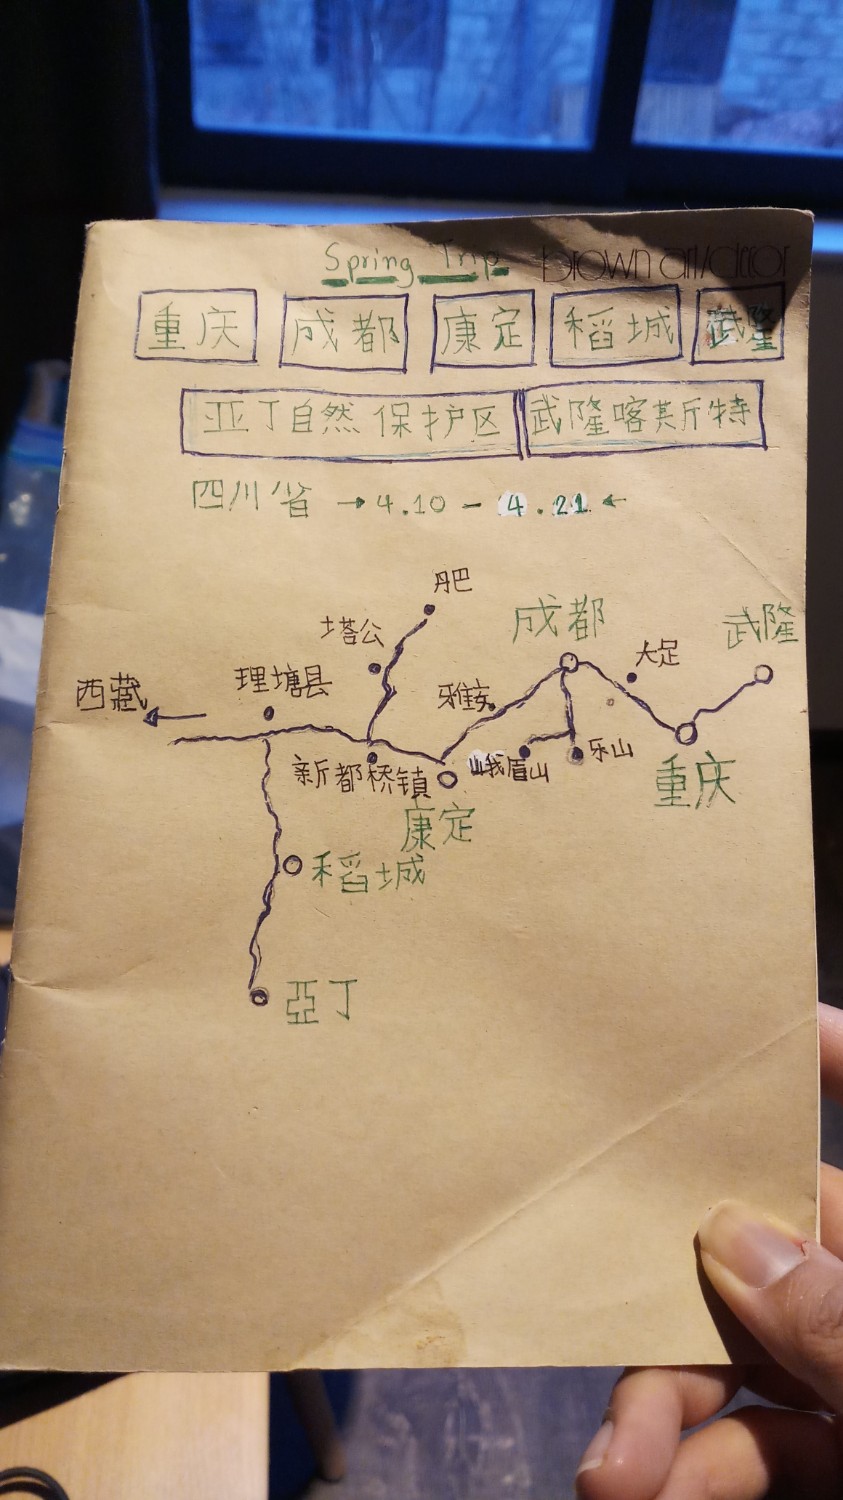 Spring Trip brown art/decor
重庆 成都 康定 稻城 武隆
亚丁自然保护区 武隆喀其斤特
四川省 → 4.10 - 4.21 ←
丹巴
成都
武隆
塔公
大足
理塘县
西藏
雅安
新都桥镇
峨眉山
乐山
重庆
康定
稻城
亞丁